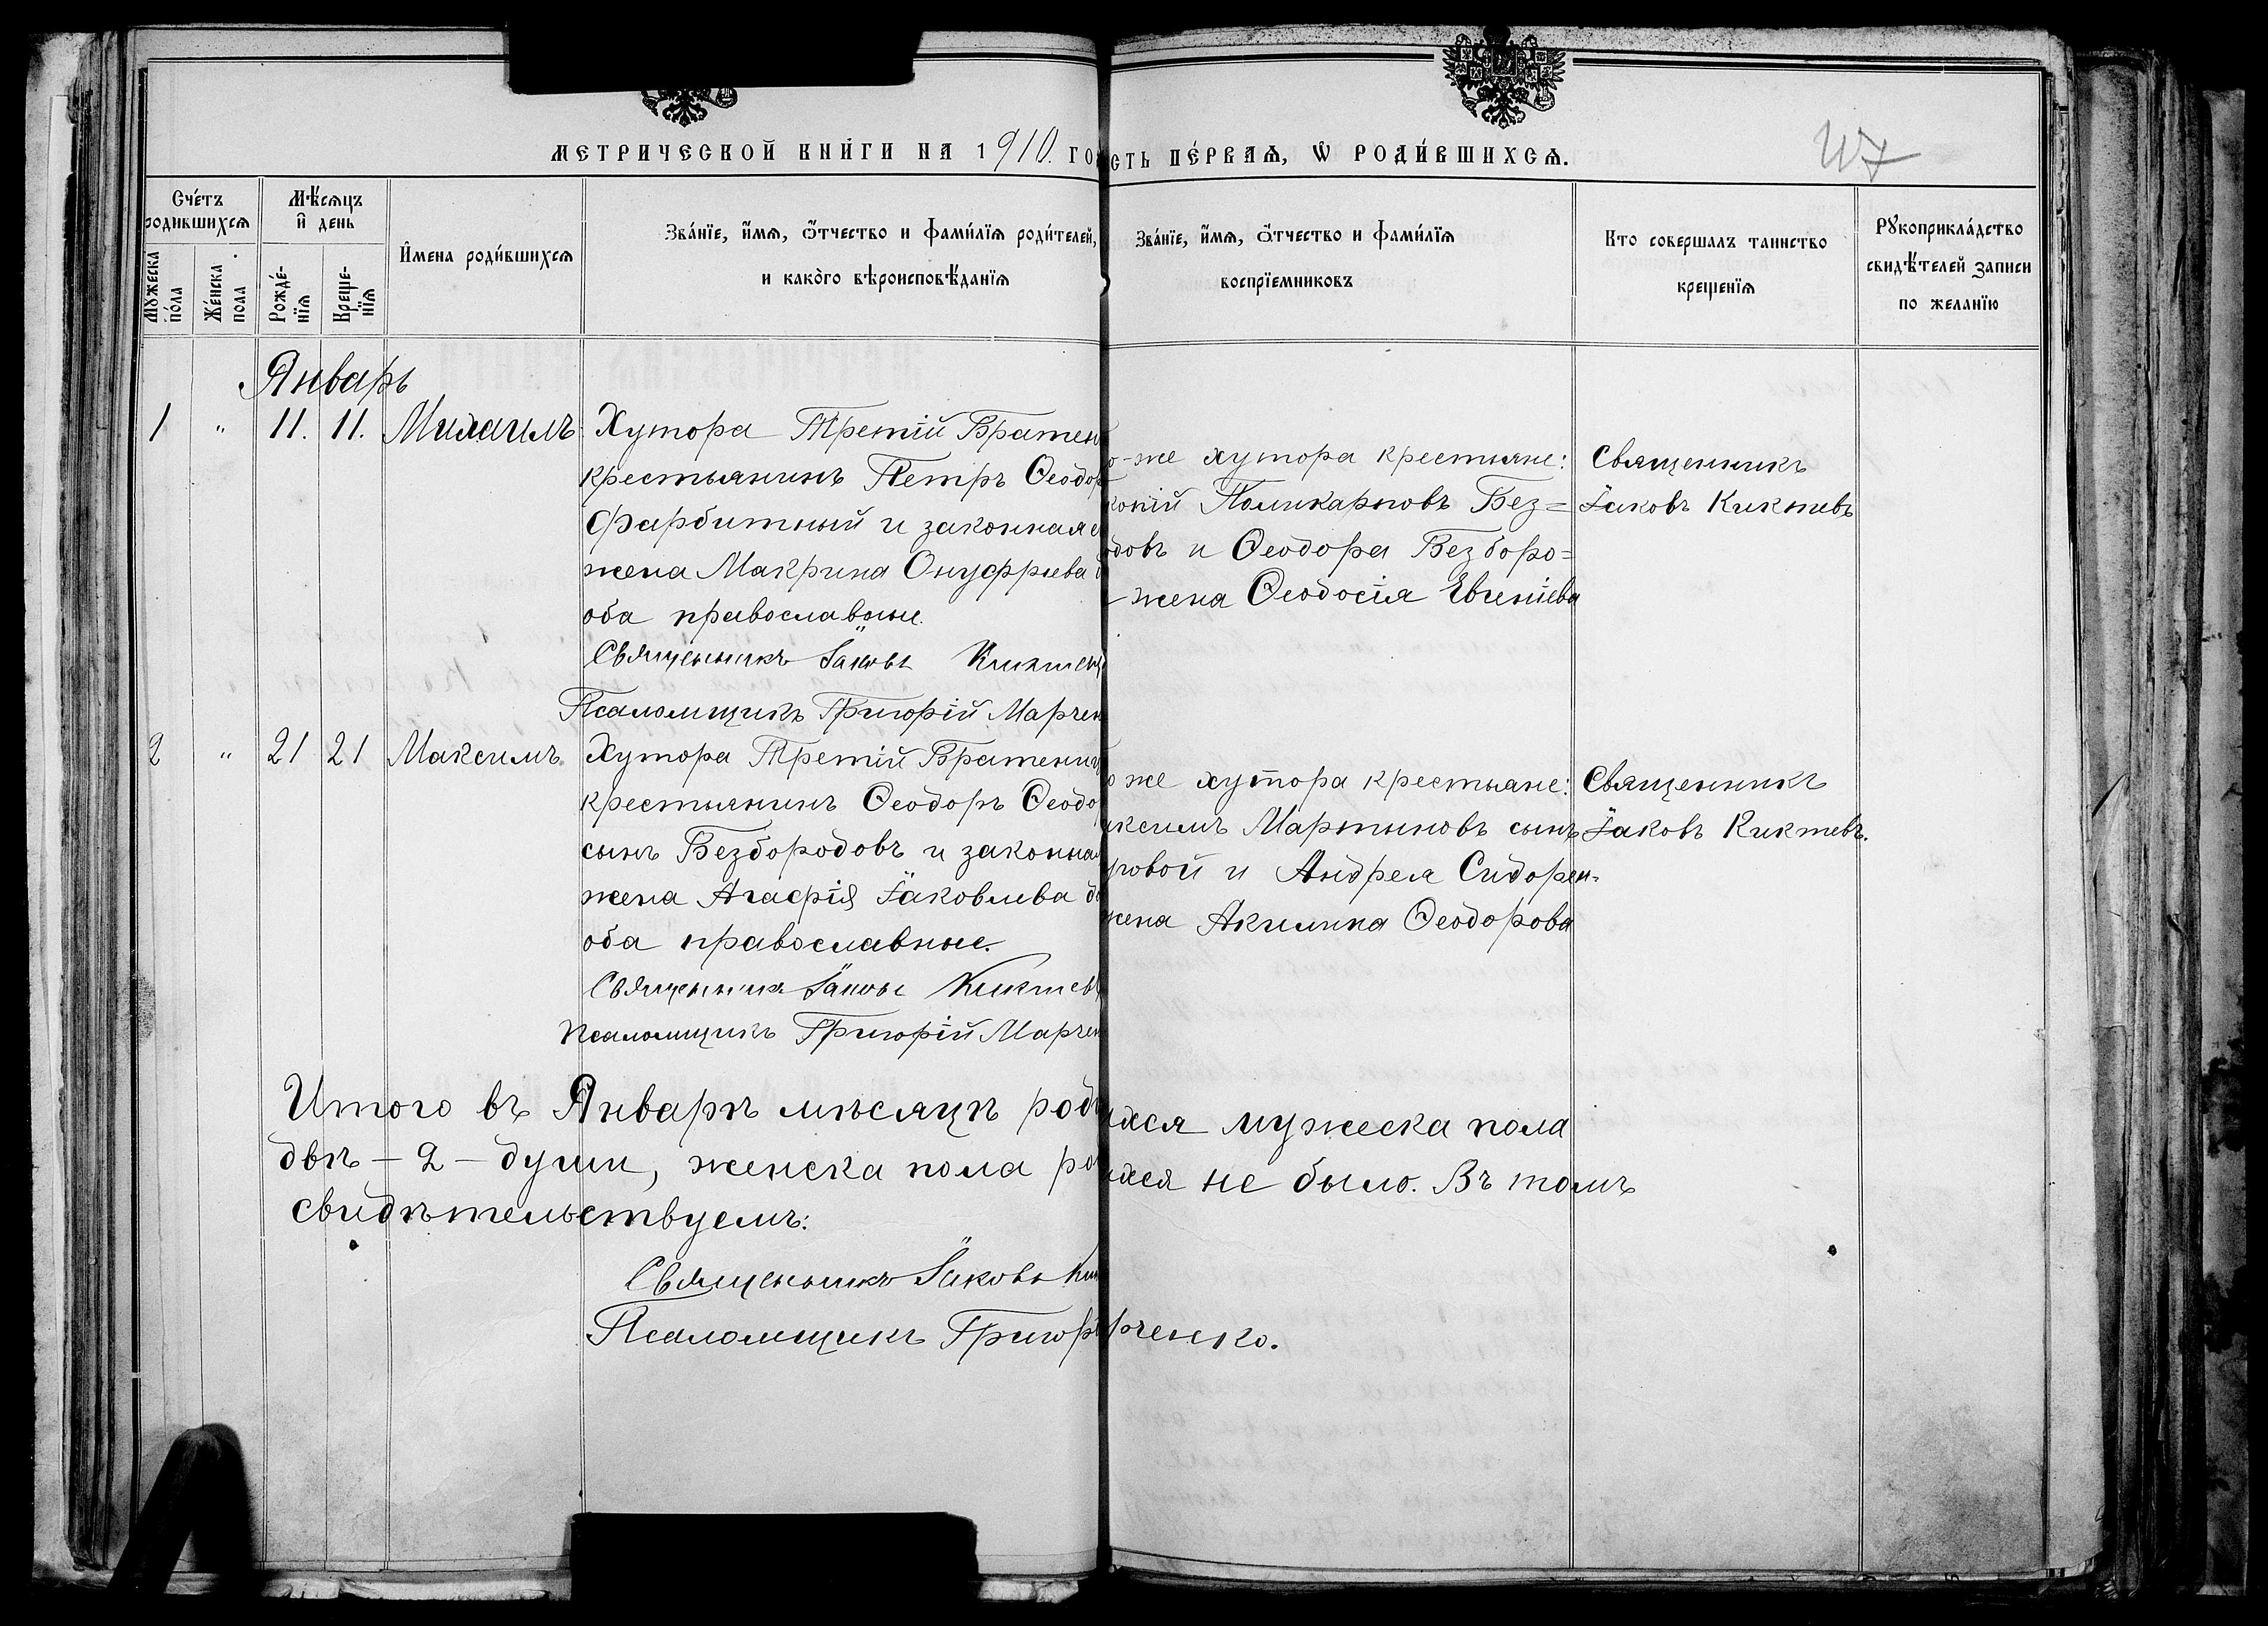 МЕТРИЧЕСКОЙ КНИ́ГИ НА 1910. ГО
СТЬ ПЕ́РВАѦ, Ѡ РОДИ́ВШИХСѦ.
Сче́тъ родившихсѧ
Мѣ́сѧцъ и день
Мꙋжеска по́ла
Же́нска пола
Рожде́-нїѧ
Креще-нїѧ
Имена роди́вшихсѧ
Зва́нїе, и́мѧ, ѻ́тчество и фами́лїѧ роди́телей,
и како́го вѣроисповѣ́данїѧ
Зва́нїе, и́мѧ, ѻ́тчество и фами́лїѧ
воспрїемниковъ
Кто совершалъ таинство
крещенїѧ
Рꙋкоприкла́дство
свидѣ́телей записи
по желанїю
Январь
1 " 11. 11. Михаилъ Хутора Третій Братен
крестьянинъ Петръ Ѳеодор
Фарбитный и законная е
жена Макрина Онуфріева
оба православные.
Священникъ Іаковъ Киктев
Псаломщикъ Григорій Марчен
о-же хутора крестьяне:
копій Поликарповъ Без=
одовъ и Ѳеодора Безборо=
жена Ѳеодосія Евгеніева
Священникъ
Іаковъ Киктевъ
2 " 21 21 Максимъ. Хутора Третій Братениц
крестьянинъ Ѳеодоръ Ѳеодо
сынъ Безбородовъ и законная
жена Агафія Іаковлева до
оба православные.
Священникъ Іаковъ Киктевъ
Псаломщикъ Григорій Марчен
о же хутора крестьяне:
ксимъ Мартыновъ сынъ
ровой и Андрея Сидорен-
жена Акилина Ѳеодорова
Священникъ
Іаковъ Киктевъ.
Итого въ Январѣ мѣсяцѣ роди
хся мужеска пола
двѣ - 2 - души, женска пола ро
хся не было. Въ томъ
свидѣтельствуемъ:
Священникъ Іаковъ Ки
Псаломщикъ Григор
рченко.